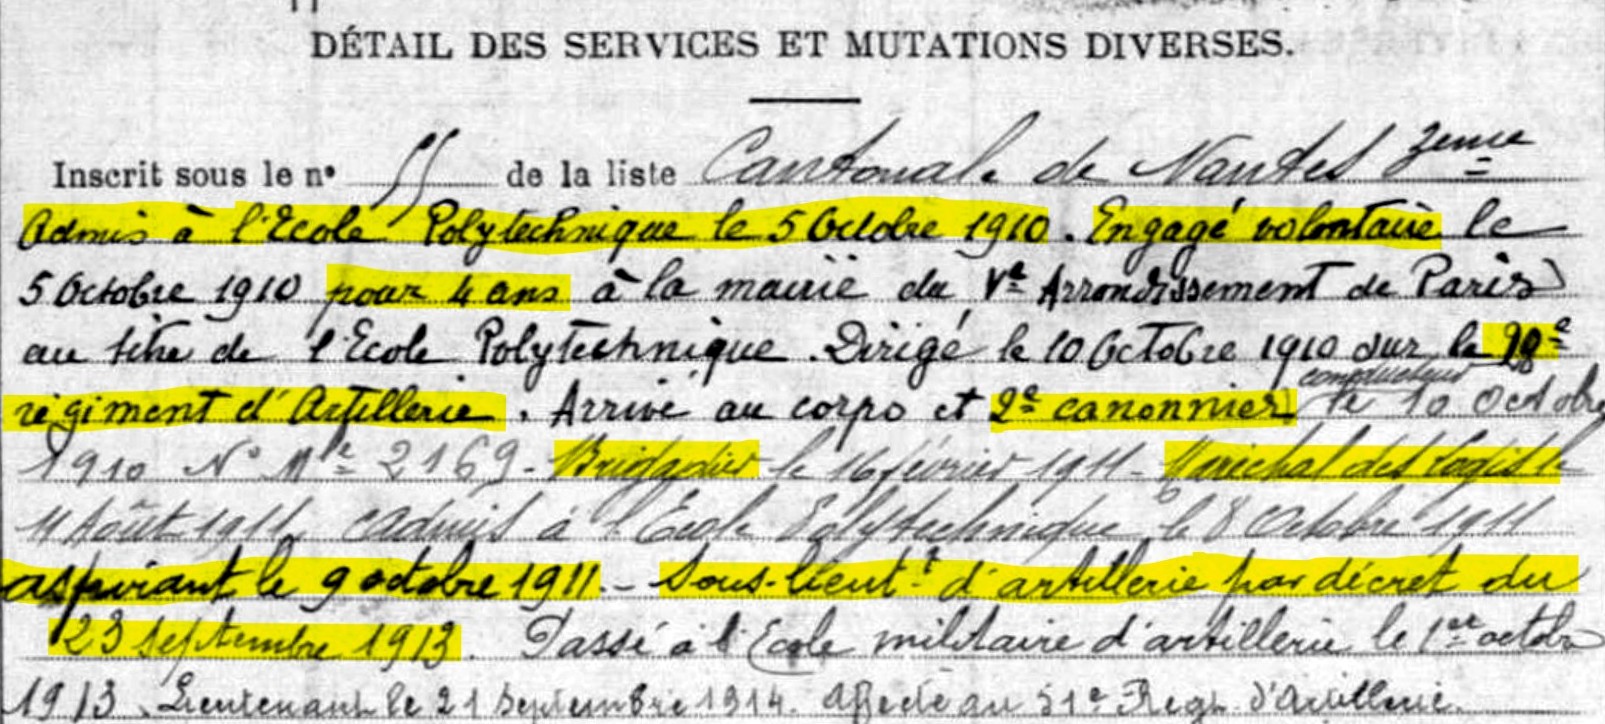 DÉTAIL DES SERVICES ET MUTATIONS DIVERSES.
Inscrit sous le n° 55 de la liste Cantonale de Nantes 3eme
Admis à l'Ecole Polytechnique le 5 Octobre 1910. Engagé volontaire le
5 Octobre 1910 pour 4 ans à la mairie du Ve Arrondissement de Paris
au titre de l'Ecole Polytechnique. Dirigé le 10 Octobre 1910 sur le
conducteur
régiment d'Artillerie. Arrivé au corps et 2e canonnier le 10 Octobre
1910 N° Mle 2169 - Brigadier le 16 février 1911 - Maréchal des logis le
11 Août 1911, admis à l'Ecole Polytechnique le 8 Octobre 1911
aspirant le 9 octobre 1911. - Sous-lieutt d'artillerie par décret du
23 septembre 1913. Passé à l'Ecole militaire d'artillerie le 1er octobre
1913. Lieutenant le 21 Septembre 1914. Affecté au 51e Regt d'Artillerie.